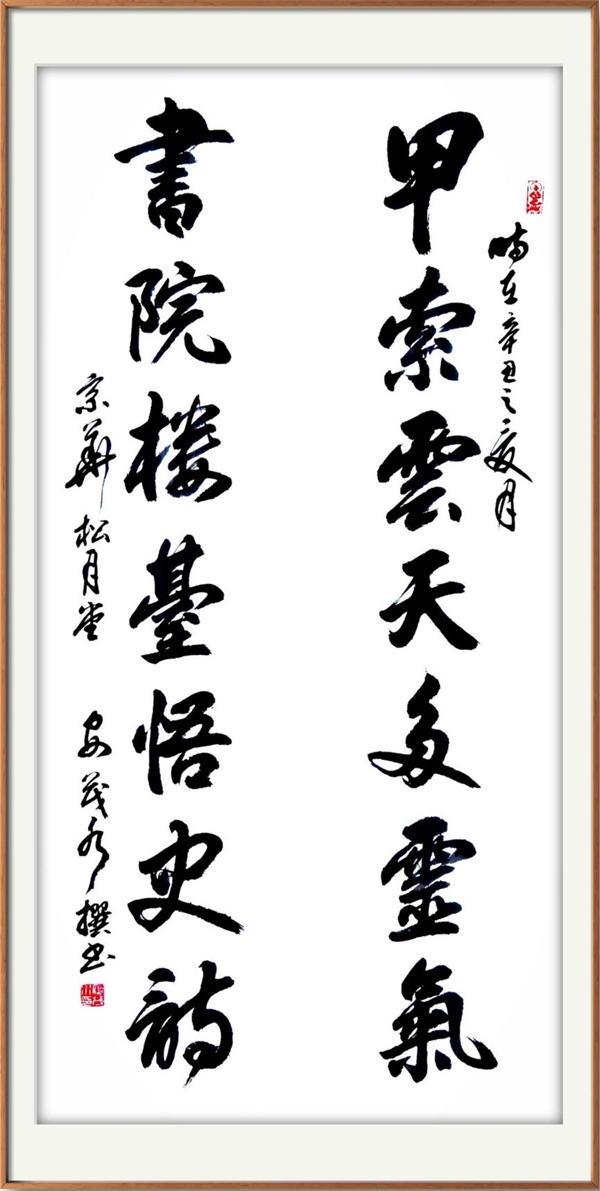 時在辛丑之夏月
甲索雲天多靈氣
書院楼臺悟史詩
京華松月堂 安茂撰书